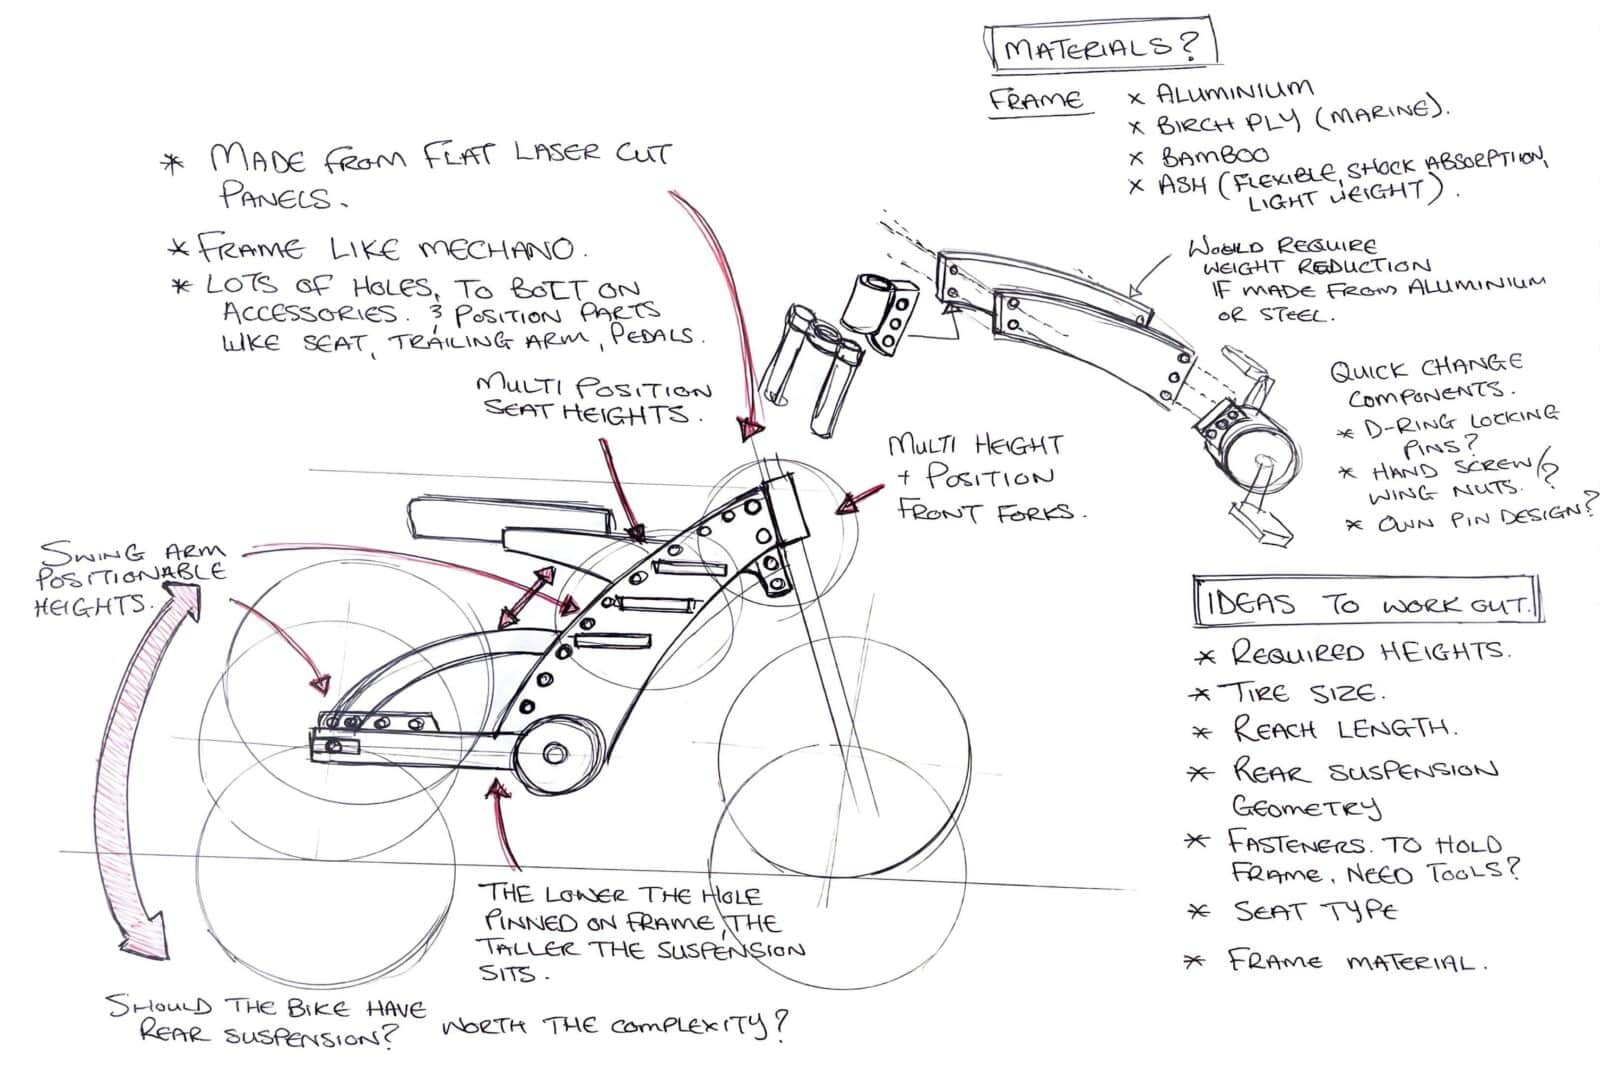 MATERIALS?
FRAME
× ALUMINIUM
× BIRCH PLY (MARINE).
× BAMBOO
× ASH (FLEXIBLE, SHOCK ABSORPTION,
LIGHT WEIGHT).
* MADE FROM FLAT LASER CUT
PANELS.
* FRAME LIKE MECHANO.
* LOTS OF HOLES, TO BOLT ON
ACCESSORIES. & POSITION PARTS
LIKE SEAT, TRAILING ARM, PEDALS.
WOULD REQUIRE
WEIGHT REDUCTION
IF MADE FROM ALUMINIUM
OR STEEL.
QUICK CHANGE
COMPONENTS.
* D-RING LOCKING
PINS?
* HAND SCREW/?
WING NUTS.
* OWN PIN DESIGN?
MULTI POSITION
SEAT HEIGHTS.
MULTI HEIGHT
+ POSITION
FRONT FORKS.
SWING ARM
POSITIONABLE
HEIGHTS.
IDEAS TO WORK OUT.
* REQUIRED HEIGHTS.
* TIRE SIZE.
* REACH LENGTH.
* REAR SUSPENSION
GEOMETRY
* FASTENERS. TO HOLD
FRAME. NEED TOOLS?
* SEAT TYPE
* FRAME MATERIAL.
THE LOWER THE HOLE
PINNED ON FRAME, THE
TALLER THE SUSPENSION
SITS.
SHOULD THE BIKE HAVE
REAR SUSPENSION?
WORTH THE COMPLEXITY?